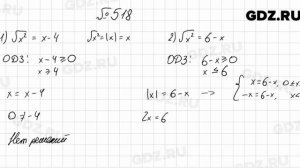 GDZ.RU
№518
1) √x² = x-4 √x² = |x| = x 2) √x² = 6-x
ОДЗ: x-4⩾0 ОДЗ: 6-x⩾0
x⩾4 x⩽6
x = x-4 |x| = 6-x → { x=6-x, 0⩽x
-x=6-x, x
0 ≠ -4 2x=6
Нет решений